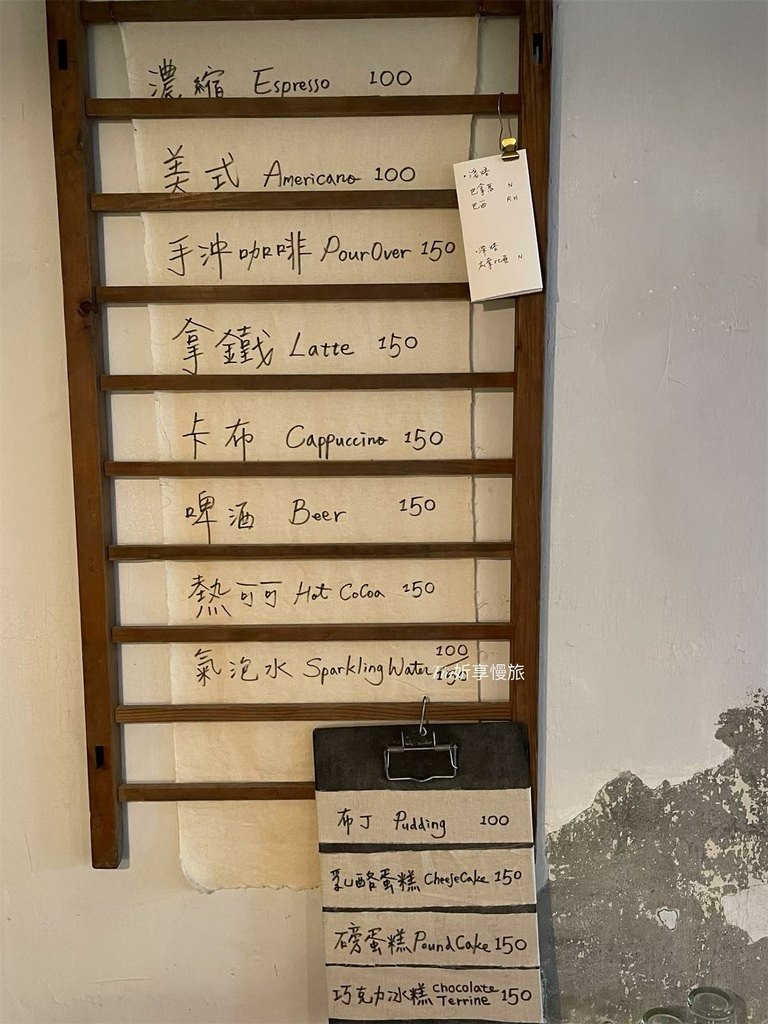 濃縮 Espresso 100
美式 Americano 100
手沖咖啡 PourOver 150
拿鐵 Latte 150
卡布 Cappuccino 150
啤酒 Beer 150
熱可可 Hot CoCoa 150
氣泡水 Sparkling Water 100
150
妡享慢旅
・淺焙
巴拿馬 N
巴西 R.H
・深焙
衣索比亞 N
布丁 Pudding 100
乳酪蛋糕 CheeseCake 150
磅蛋糕 PoundCake 150
巧克力冰糕 chocolate Terrine 150